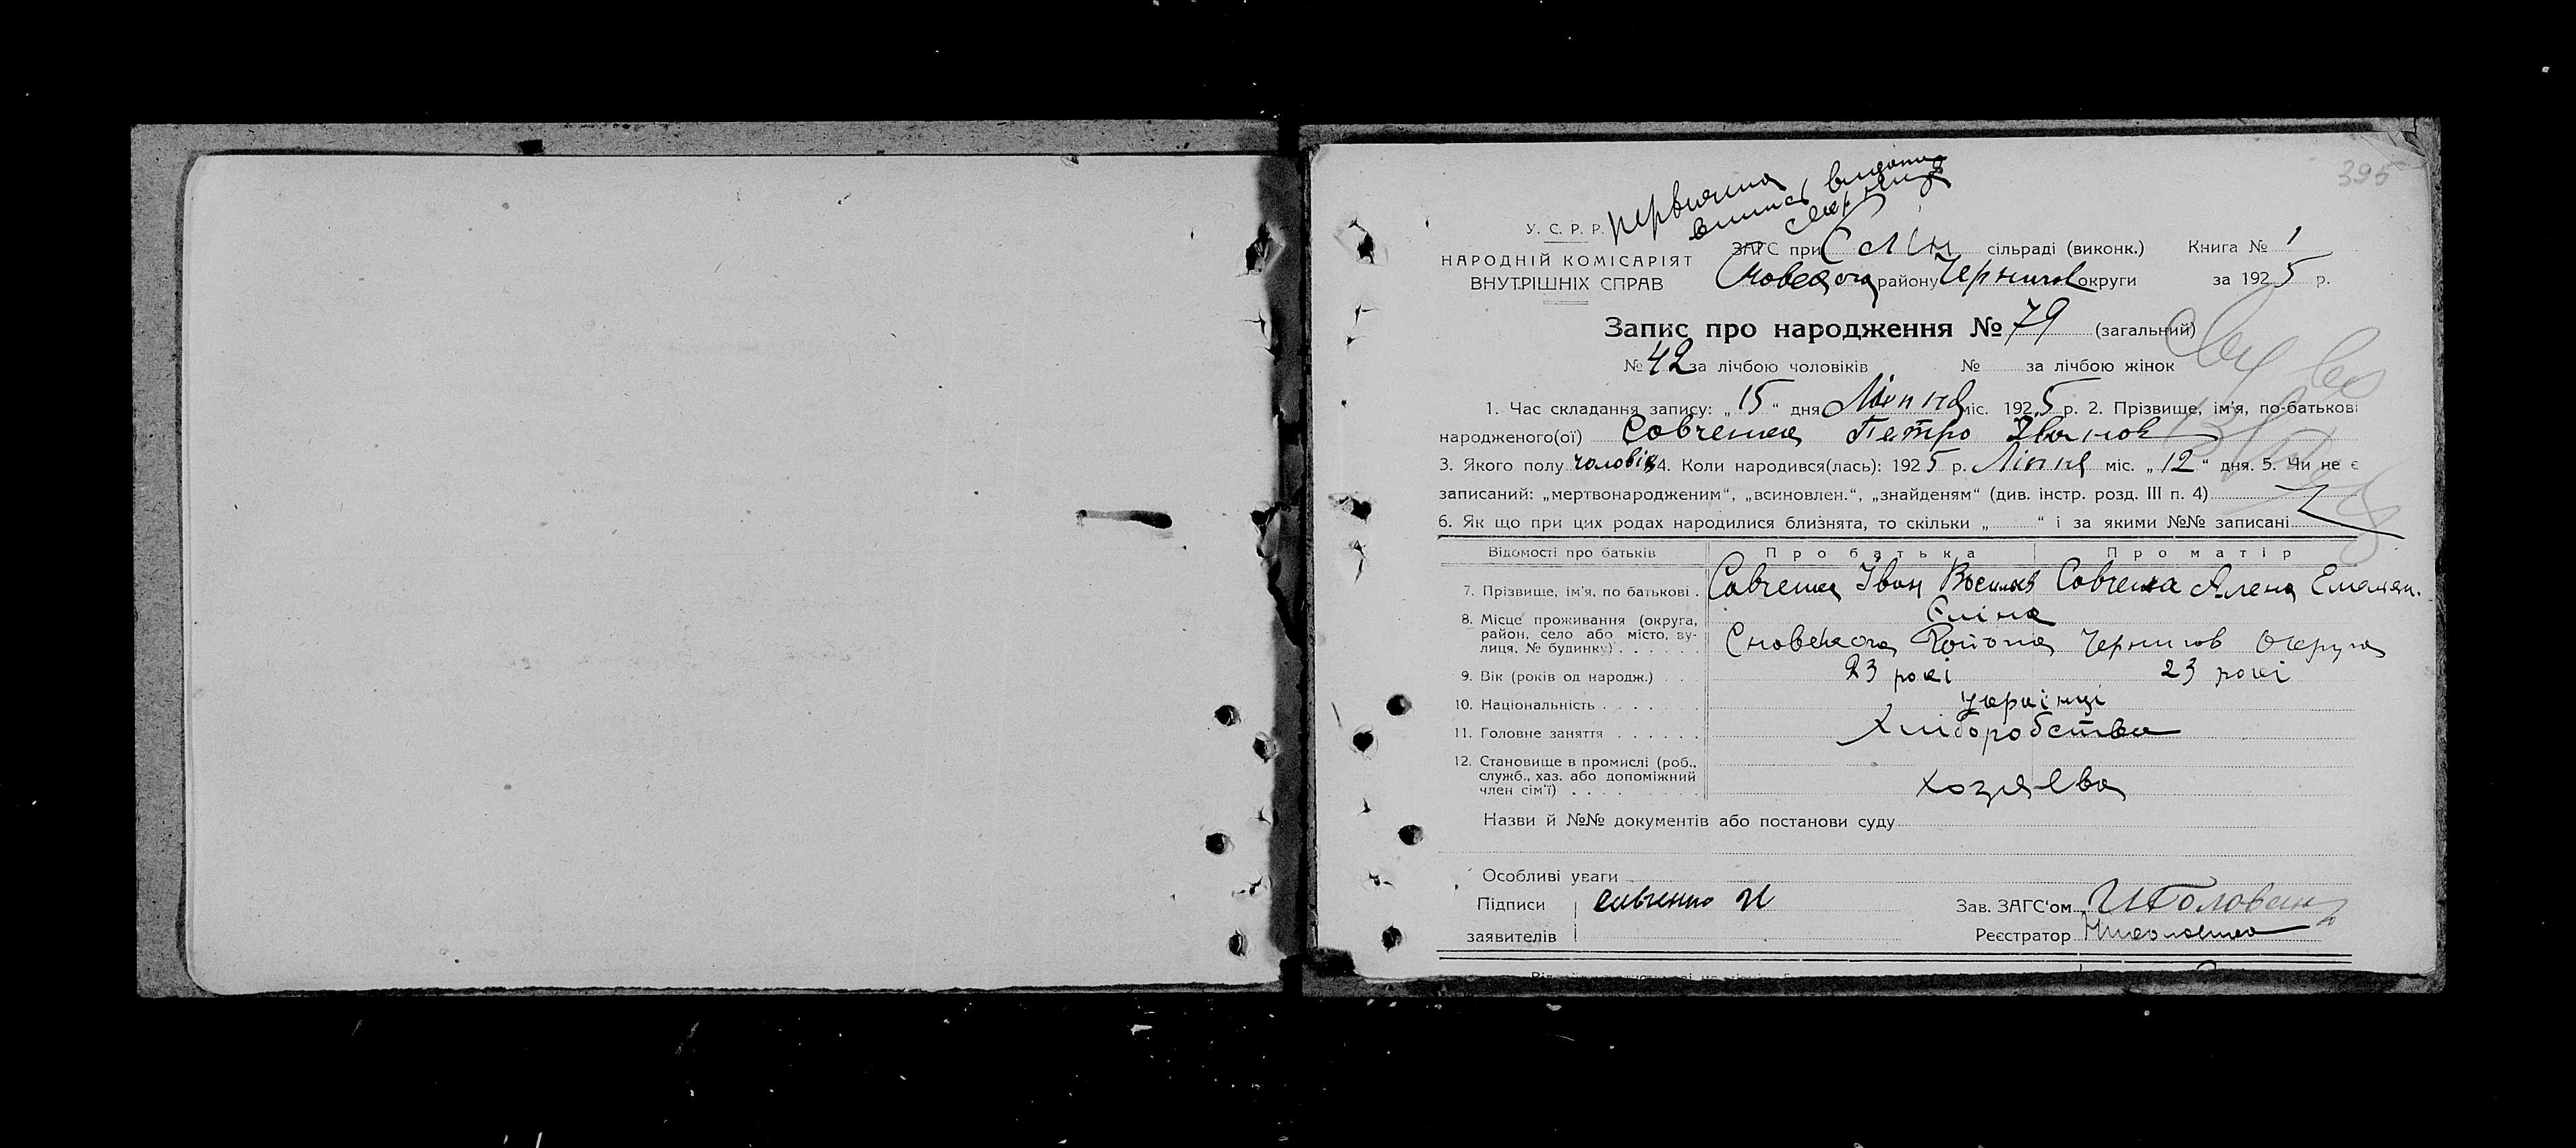 395
первична
випись видана
У. С. Р. Р.
НАРОДНІЙ КОМІСАРІЯТ
ВНУТРІШНІХ СПРАВ
ЗАГС при Слін сільраді (виконк.) Книга № 1
Сновского району Чернигов округи за 1925 р.
Запис про народження № 79 (загальний)
№ 42 за лічбою чоловіків № за лічбою жінок
1. Час складання запису: „15“ дня Липня міс. 1925 р. 2. Прізвище, ім'я, по-батькові
народженого(ої) Савченка Петро Іванов
3. Якого полу чоловік 4. Коли народився(лась): 1925 р. Ліпня міс. „12“ дня. 5. Чи не є
записаний: „мертвонародженим“, „всиновлен.“, „знайденям“ (див. інстр. розд. III п. 4)
6. Як що при цих родах народилися близнята, то скільки „ “ і за якими №№ записані
Відомості про батьків Про батька Про матір
7. Прізвище, ім'я, по батькові . Савченка Іван Васильев Савченка Алена Емельян.
8. Місце проживання (округа,
район, село або місто, ву-
лиця, № будинку) . . . . . .
Сліна
Сновского Района Чернигов Округа
9. Вік (років од народж.) . . 23 рокі 23 рокі
10. Національність . . . . . . . українці
11. Головне заняття . . . . . . Хліборобства
12. Становище в промислі (роб.,
служб., хаз. або допоміжний
член сім'ї) . . . . . . . . .
хозяева
Назви й №№ документів або постанови суду
Особливі уваги
Підписи Савченко И Зав. ЗАГС'ом И Головин
заявителів Реєстратор